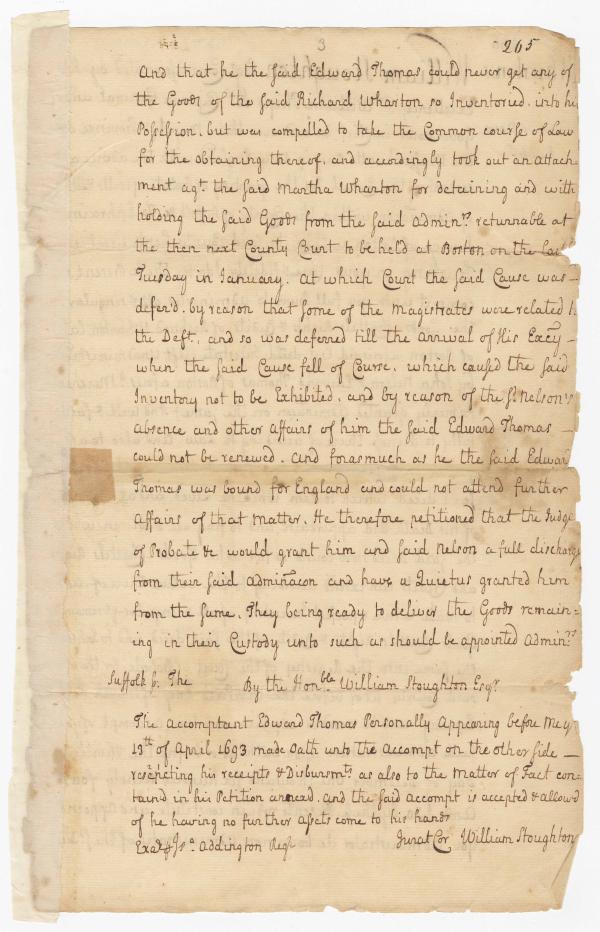 3
265
And that he the said Edward Thomas could never get any of
the Goods of the said Richard Wharton so Inventoried, into his
Possession, but was compelled to take the Common course of Law
for the obtaining thereof, and accordingly took out an attach-
ment agt. the said Martha Wharton for detaining and with
holding the said Goods from the said Adminrs. returnable at
the then next County Court to be held at Boston on the last
Tuesday in January. At which Court the said Cause was
defer'd, by reason that some of the Magistrates were related to
the Deft. and so was deferred till the Arrival of His Excy
when the said Cause fell of Course, which caused the said
Inventory not to be Exhibited, and by reason of the sd. Nelson's
absence and other affairs of him the said Edward Thomas
could not be renewed. And forasmuch as he the said Edward
Thomas was bound for England and could not attend further
affairs of that matter, He therefore petitioned that the Judge
of Probate &c would grant him and said Nelson a full discharge
from their said Adminacon and have a Quietus granted him
from the same, They being ready to deliver the Goods remain=
ing in their Custody unto such as should be appointed Adminrs.
Suffolk ss. The By the Honble. William Stoughton Esqr.
The Accomptant Edward Thomas Personally Appearing before me ye
13th of April 1693 made Oath unto the Accompt on the other side
respecting his receipts & Disbursmts. as also to the Matter of Fact con=
taind in his Petition annexd. and the said Accompt is accepted & allowd
of he having no further assets come to his hands
Exad. Isa. Addington Regr. Jurat Cor William Stoughton